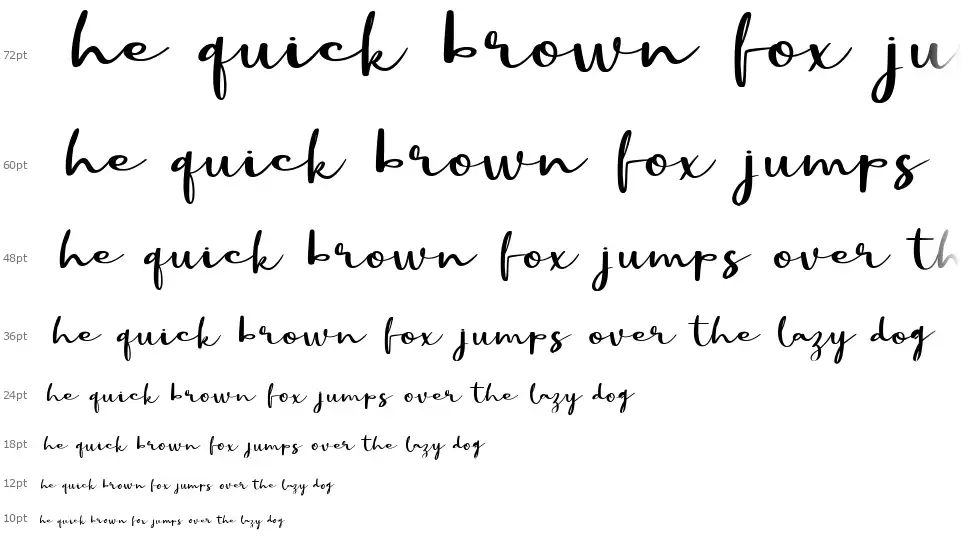 72pt he quick brown fox ju
60pt he quick brown fox jumps
48pt he quick brown fox jumps over th
36pt he quick brown fox jumps over the lazy dog
24pt he quick brown fox jumps over the lazy dog
18pt he quick brown fox jumps over the lazy dog
12pt he quick brown fox jumps over the lazy dog
10pt he quick brown fox jumps over the lazy dog